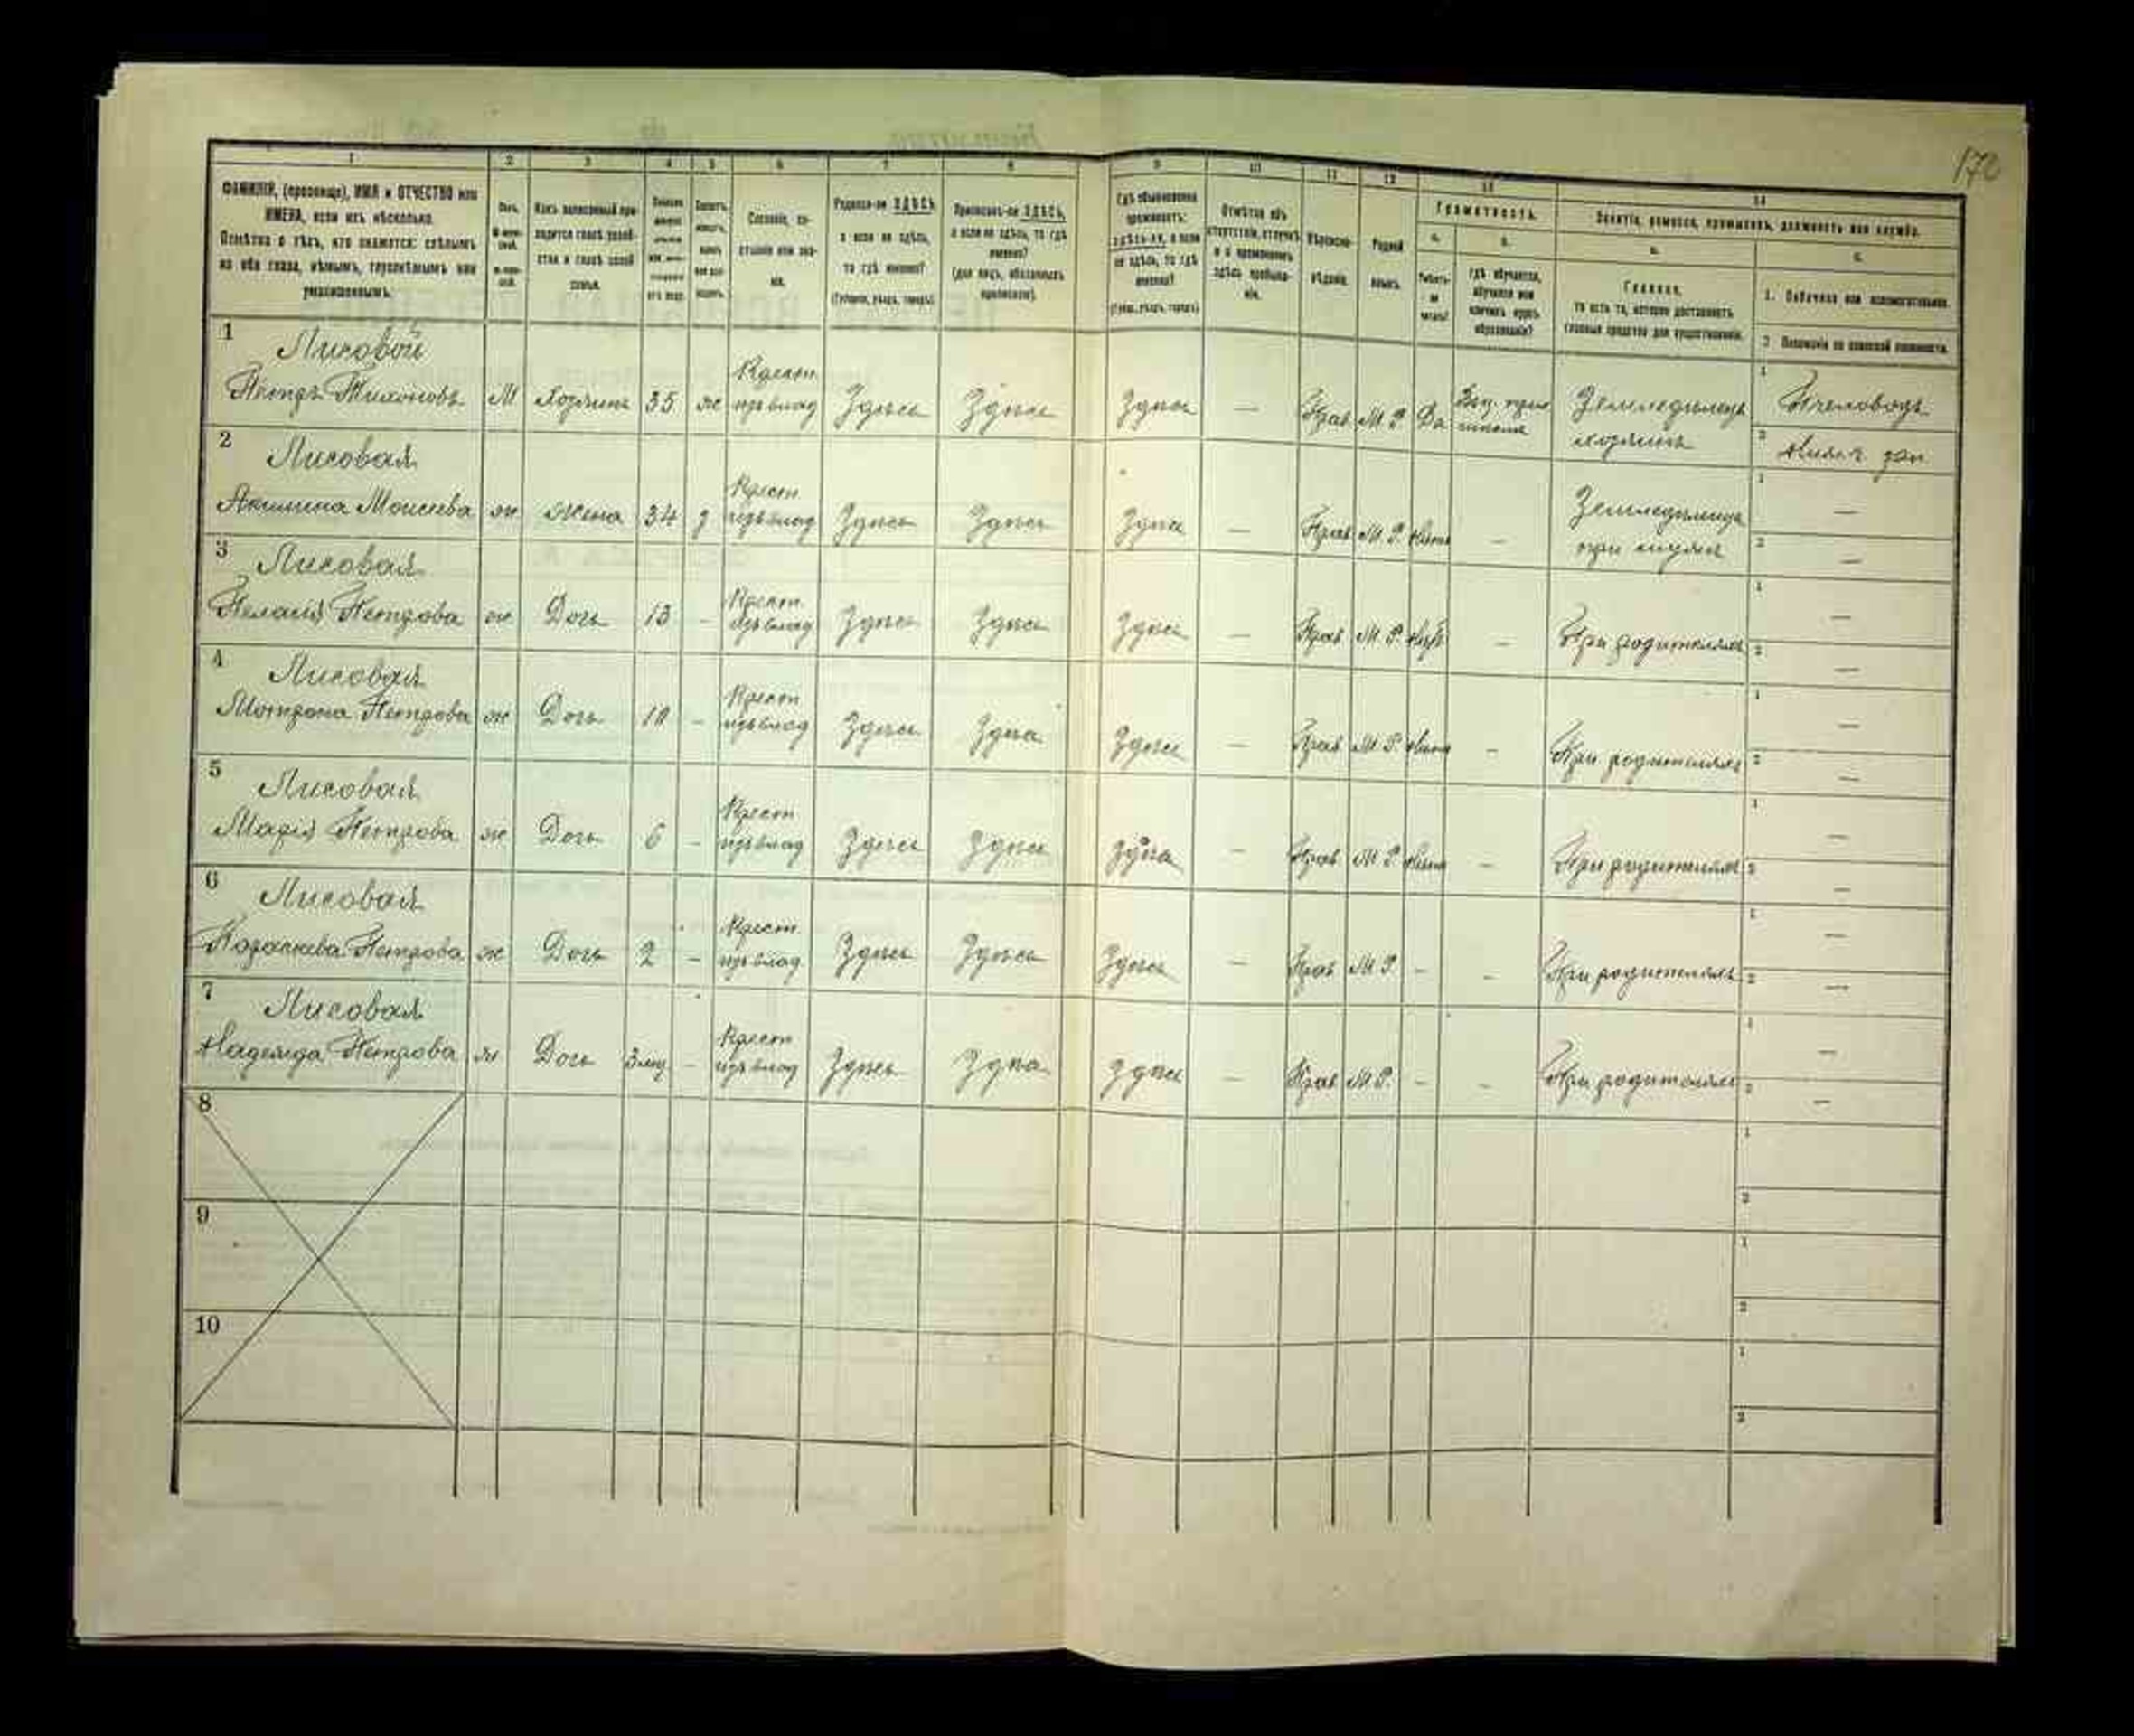 172
1 2 3 4 5 6 7 8 9 10 11 12 13 14
ФАМИЛІЯ, (прозвище), ИМЯ и ОТЧЕСТВО или
ИМЕНА, если ихъ нѣсколько.
Отмѣтка о тѣхъ, кто окажется: слѣпымъ
на оба глаза, нѣмымъ, глухонѣмымъ или
умалишеннымъ.
Полъ.
Какъ записанный при-
ходится главѣ хозяй-
ства и главѣ своей
семьи.
Сословіе, со-
стояніе или зва-
ніе.
Родился-ли ЗДѢСЬ,
а если не здѣсь,
то гдѣ именно?
(Губернія, уѣздъ, городъ).
Приписанъ-ли ЗДѢСЬ,
а если не здѣсь, то гдѣ
именно?
(для лицъ, обязанныхъ
припискою).
Гдѣ обыкновенно
проживаетъ:
здѣсь-ли, а если
не здѣсь, то гдѣ
именно?
(Губ., уѣздъ, городъ).
Отмѣтка объ
отсутствіи, отлучкѣ
и о временномъ
здѣсь пребыва-
ніи.
Вѣроиспо-
вѣданіе.
Родной
языкъ.
Грамотность.
а. б.
Умѣетъ-
ли
читать?
гдѣ обучается,
обучался или
кончилъ курсъ
образованія?
Занятіе, ремесло, промыселъ, должность или служба.
а. б.
Главное,
то есть то, которое доставляетъ
главныя средства для существованія.
1. Побочное или вспомогательное.
2 Положеніе по воинской повинности.
1 Лисовой
Петръ Тихоновъ М Хозяинъ 35 ж Крест. изъ влад Здѣсь Здѣсь Здѣсь — Прав М Р. Да Земледѣлецъ хозяинъ 1 Пчеловодъ
2
2 Лисовая
Акилина Моисеева ж Жена 34 з Крест. изъ влад Здѣсь Здѣсь Здѣсь — Прав М. Р. Нѣтъ — Земледѣлецъ при мужѣ 1 — 2 —
3 Лисовая
Пелагія Петрова ж Дочь 13 - Крест. изъ влад Здѣсь Здѣсь Здѣсь — Прав М. Р. Нѣтъ — При родителяхъ 1 — 2 —
4 Лисовая
Мотрона Петрова ж Дочь 10 - Крест изъ влад Здѣсь Здѣсь Здѣсь — Прав М Р. Нѣтъ — При родителяхъ 1 — 2 —
5 Лисовая
Марія Петрова ж Дочь 6 - Крест изъ влад Здѣсь Здѣсь Здѣсь — Прав М Р Нѣтъ — При родителяхъ 1 — 2 —
6 Лисовая
Параскева Петрова ж Дочь 2 - Крест. изъ влад Здѣсь Здѣсь Здѣсь — Прав М Р. - - При родителяхъ 1 — 2 —
7 Лисовая
Надежда Петрова ж Дочь 3 мц - Крест изъ влад Здѣсь Здѣсь Здѣсь — Прав М Р. - - При родителяхъ 1 — 2 —
8 1 2
9 1 2
10 1 2